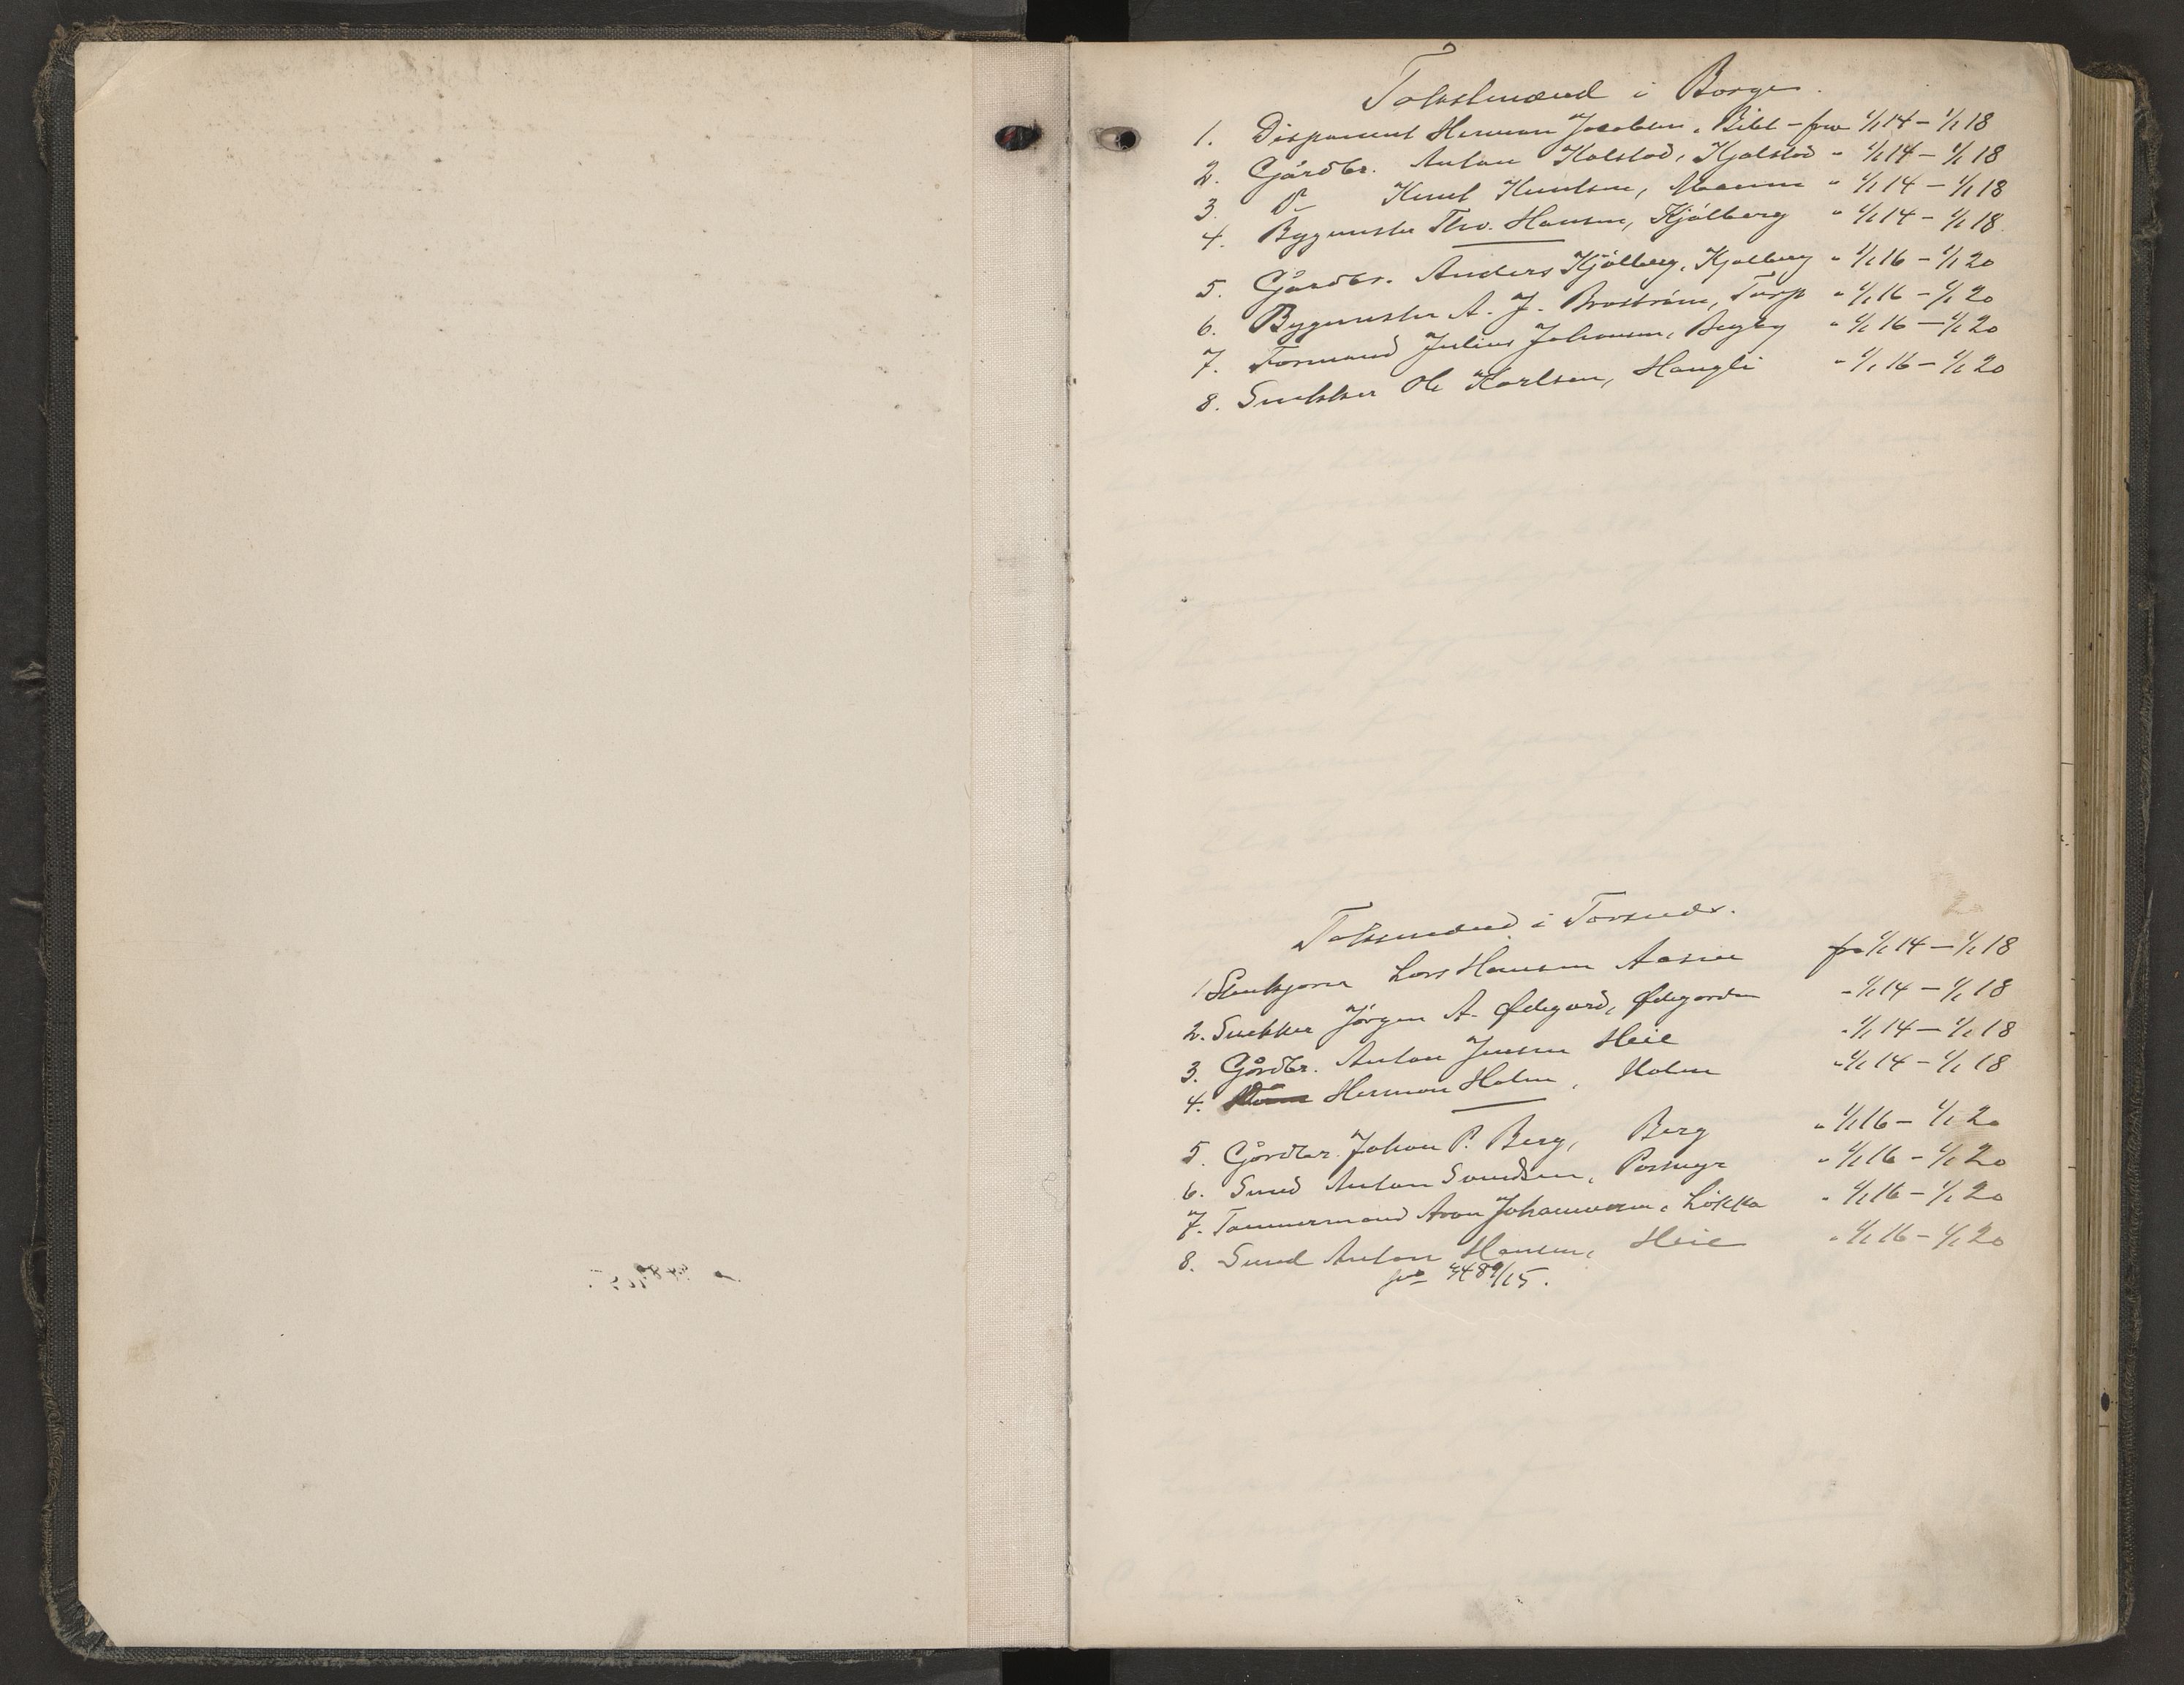 Takstmænd i Borge.
1. Disponent Herman Jacobsen, - fra 1/1 14 – 1/1 18
2. Gårdbr. Anton Kolstad, Kjølstad " 1/1 14 – 1/1 18
3. Do Knut Knutsen, " 1/1 14 – 1/1 18
4. Bygmester Thv. Hansen, Kjølberg " 1/1 14 – 1/1 18
5. Gårdbr. Anders Kjølberg, Kjølberg " 1/1 16 – 1/1 20
6. Bygmester A. J. Broström, Torp " 1/1 16 – 1/1 20
7. Formand Julius Johansen, Begby " 1/1 16 – 1/1 20
8. Snekker Ole Karlsen, Haugli " 1/1 16 – 1/1 20
Takstmænd i Torsnæs.
1. Lars Hansen fra 1/1 14 – 1/1 18
2. Snekker Jörgen A. Ødegård, Ødegården " 1/1 14 – 1/1 18
3. Gårdbr. Anton Jensen Heie " 1/1 14 – 1/1 18
4. Herman Holm, Holm " 1/1 14 – 1/1 18
5. Gårdbr. Johan P. Berg, Berg " 1/1 16 – 1/1 20
6. Smed Anton Svendsen, " 1/1 16 – 1/1 20
7. Tømmermand Aron Johannesen, Løkka " 1/1 16 – 1/1 20
8. Smed Anton Hansen, Heie " 1/1 16 – 1/1 20